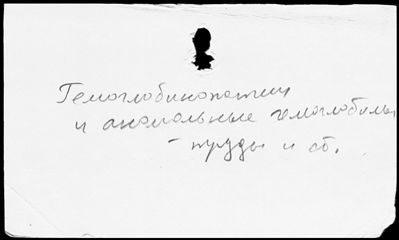 Гемоглобинопатии
и аномальные гемоглобины
- труды и сб.